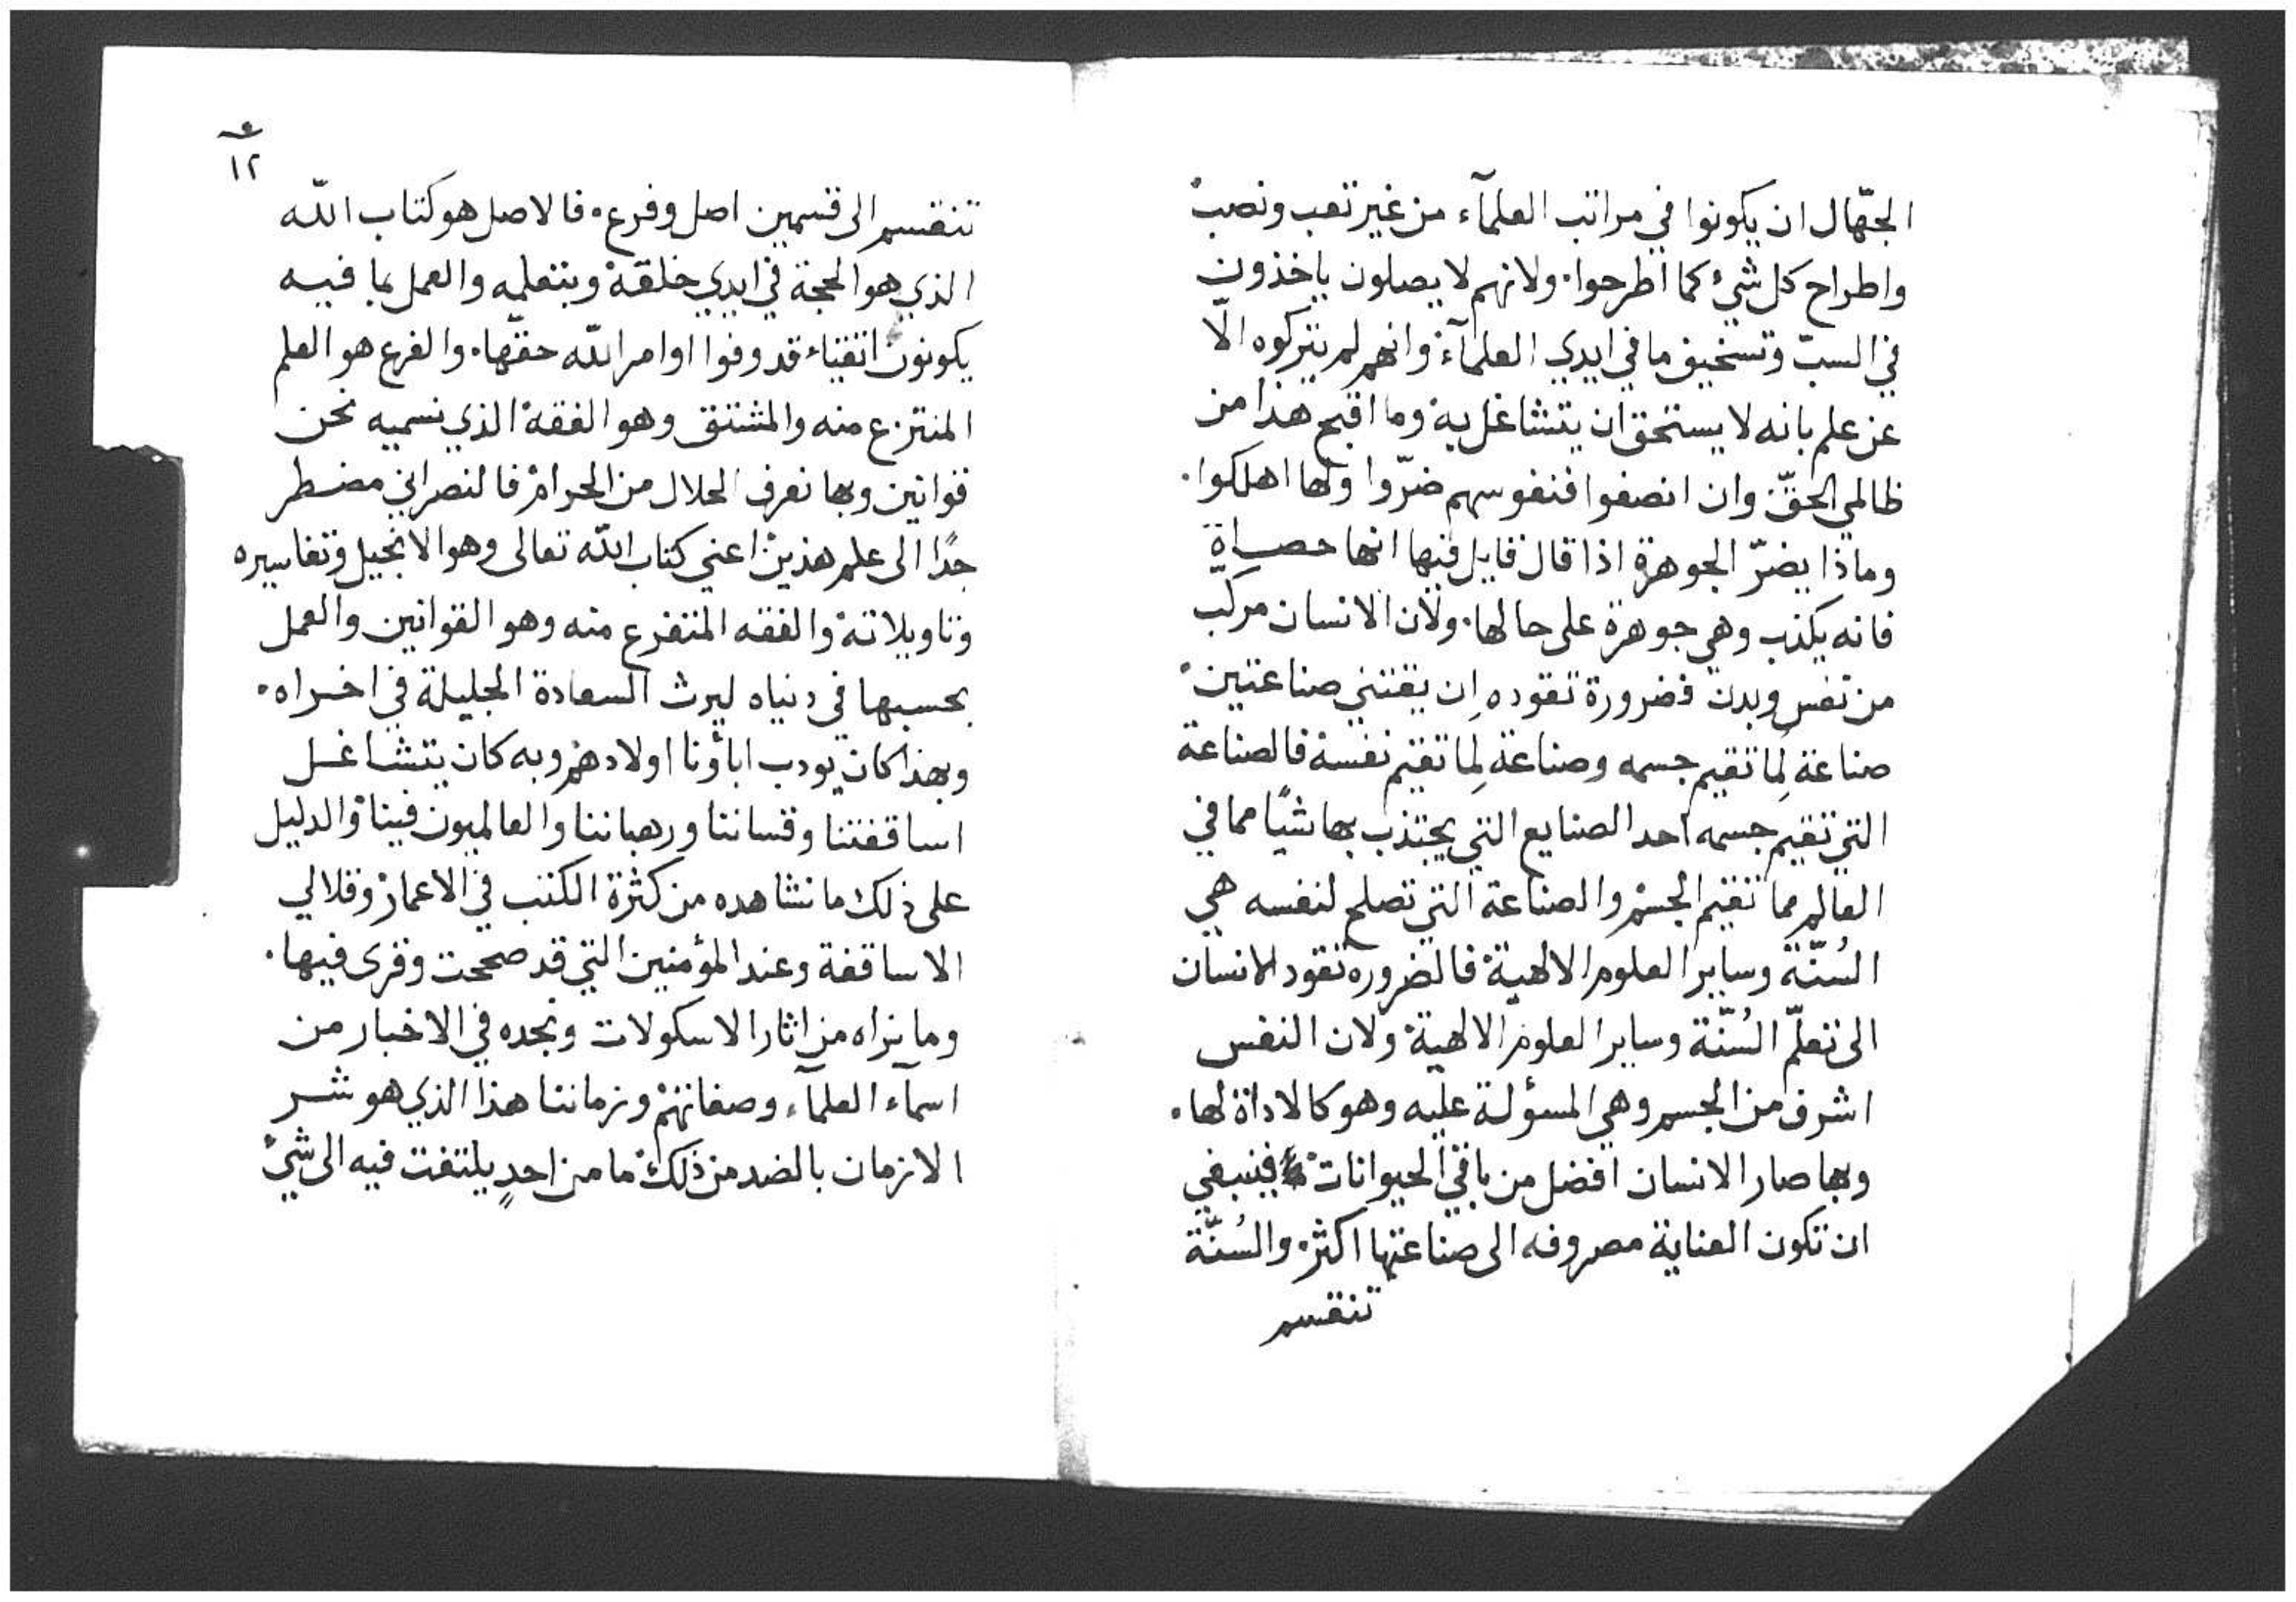 الجهّال ان يكونوا في مراتب العلمآء من غير تعب ونصب
واطراح كل شيء كما اطرحوا. ولانهم لا يصلون ياخذون
في السبّ وتسخيف ما في ايدي العلمآء وانهم لم يتركوه الّا
عن علم بانه لا يستحق ان يتشاغل به وما اقبح هذا من
ظالمي الحقّ وان انصفوا فنفوسهم ضرّوا ولها اهلكوا.
وماذا يضرّ الجوهرة اذا قال قايل فيها انها حصاة
فانه يكذب وهي جوهرة على حالها. ولان الانسان مركب
من نفس وبدن فضرورة تقوده إن يقتني صناعتين
صناعة لِما تقيم جسمه وصناعة لِما تقيم نفسه فالصناعة
التي تقيم جسمه احد الصنايع التي يجتذب بها شيًا مما في
العالم مما تقيم الجسم والصناعة التي تصلح لنفسه هي
السُنّة وساير العلوم الالهية فالضروره تقود الانسان
الى تعلّم السُنّة وساير العلوم الالهية ولان النفس
اشرف من الجسم وهي المسؤلة عليه وهو كالاداة لها.
وبها صار الانسان افضل من باقي الحيوانات فينبغي
ان تكون العناية مصروفه الى صناعتها اكثر والسُنّة
تنقسم
١٢
تنقسم الى قسمين اصل وفرع. فالاصل هو كتاب الله
الذي هو الحجة في ايدي خلقه وبتعلمه والعمل بما فيه
يكونون اتقياء قد وفوا اوامر الله حقّها. والفرع هو العلم
المنتزع منه والمشتق وهو الفقه الذي نسميه نحن
قوانين وبها نعرف الحلال من الحرام فالنصراني مضطر
جدًا الى علم هذين اعني كتاب الله تعالى وهو الانجيل وتفاسيره
وتاويلاته والفقه المتفرع منه وهو القوانين والعمل
بحسبها في دنياه ليرث السعادة الجليلة في اخراه.
وبهذا كان يودب اباؤنا اولادهم وبه كان يتشاغل
اساقفتنا وقساننا ورهباننا والعالميون فينا والدليل
على ذلك ما نشاهده من كثرة الكتب في الاعمار وقلالي
الاساقفة وعند المؤمنين التي قد صححت وقرى فيها.
وما نراه من اثار الاسكولات ونجده في الاخبار من
اسمآء العلمآء وصفاتهم وزماننا هذا الذي هو شر
الازمان بالضد من ذلك ما من احدٍ يلتفت فيه الى شيء